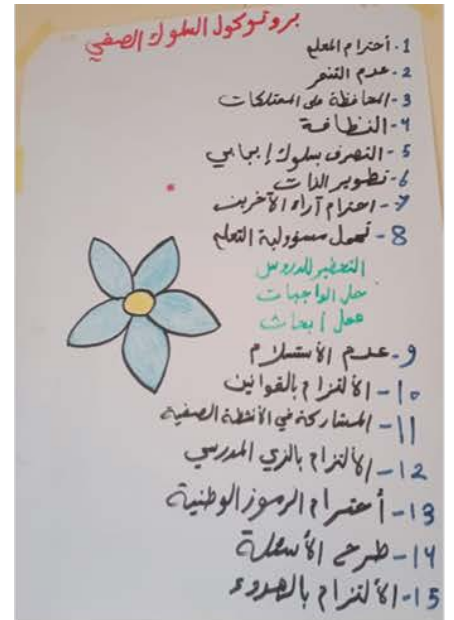 بروتوكول السلوك الصفي
1- أحترام المعلم
2- عدم التنمر
3- المحافظة على الممتلكات
4- النظافة
5- التصرف بسلوك إيجابي
6- تطوير الذات
7- احترام آراء الآخرين
8- تحمل مسؤولية التعلم
التحضير للدروس
حل الواجبات
عمل أبحاث
9- عدم الأستسلام
10- الألتزام بالقوانين
11- المشاركة في الأنشطة الصفية
12- الألتزام بالزي المدرسي
13- أحترام الرموز الوطنية
14- طرح الأسئلة
15- الألتزام بالهدوء